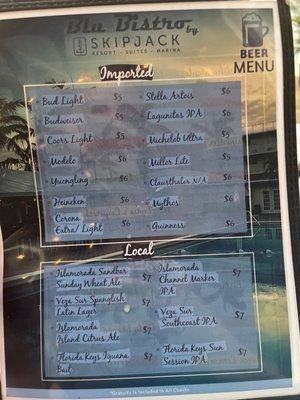 Blu Bistro by
SKIPJACK
RESORT • SUITES • MARINA
BEER
MENU
Imported
Bud Light $5
Budweiser $5
Coors Light $5
Modelo $6
Yuengling $6
Heineken $6
Corona
Extra/ Light $6
Stella Artois $6
Lagunitas IPA $6
Michelob Ultra $5
Miller Lite $5
Clausthaler N/A $6
Mythos $6
Guinness $6
Local
Islamorada Sandbar
Sunday Wheat Ale $7
Veza Sur Spanglish
Latin Lager $7
Islamorada
Island Citrus Ale $7
Florida Keys Iguana
Bait $7
Islamorada
Channel Marker
IPA $7
Veza Sur
Southcoast IPA $7
Florida Keys Sun
Session IPA $7
*Gratuity is Included to All Checks